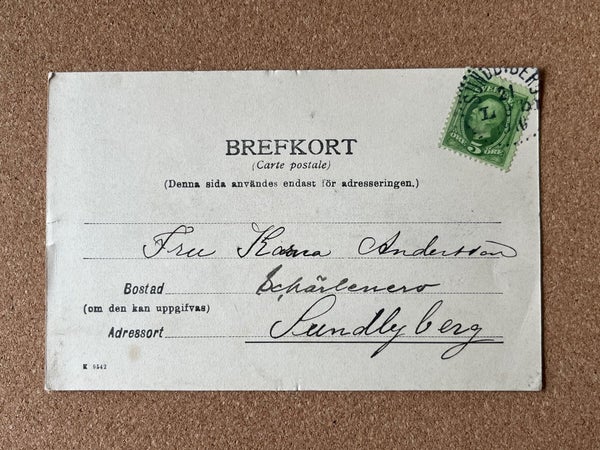 SUNDBYBERG
SVERIGE
5
ÖRE
BREFKORT
(Carte postale)
(Denna sida användes endast för adresseringen.)
Fru Karna Andersson
Bostad
(om den kan uppgifvas)
Adressort Sundbyberg
K 9542